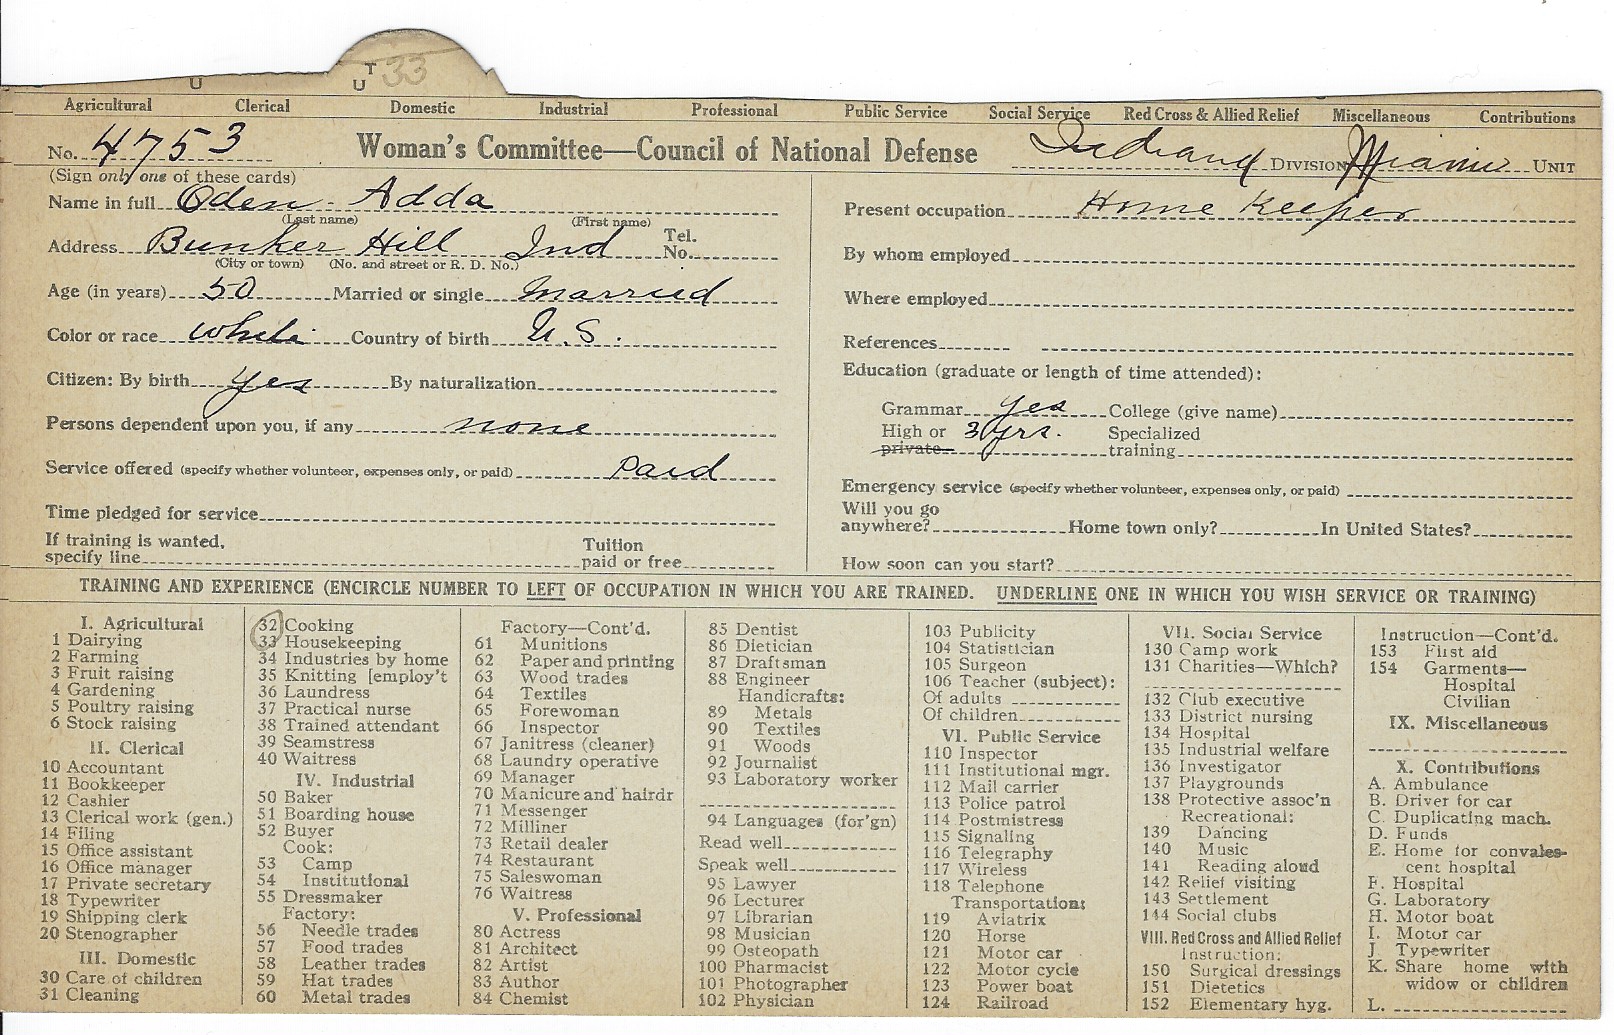 U T U 33
Agricultural Clerical Domestic Industrial Professional Public Service Social Service Red Cross & Allied Relief Miscellaneous Contributions
No. 4753 Woman's Committee—Council of National Defense Indiana DIVISION Miami UNIT
(Sign only one of these cards)
Name in full Oden Adda
(Last name) (First name)
Address Bunker Hill Ind Tel. No.
(City or town) (No. and street or R. D. No.)
Age (in years) 50 Married or single Married
Color or race White Country of birth U.S.
Citizen: By birth Yes By naturalization
Persons dependent upon you, if any none
Service offered (specify whether volunteer, expenses only, or paid) Paid
Time pledged for service
If training is wanted, specify line Tuition paid or free
Present occupation Home Keeper
By whom employed
Where employed
References
Education (graduate or length of time attended):
Grammar yes College (give name)
High or private 3 yrs. Specialized training
Emergency service (specify whether volunteer, expenses only, or paid)
Will you go anywhere? Home town only? In United States?
How soon can you start?
TRAINING AND EXPERIENCE (ENCIRCLE NUMBER TO LEFT OF OCCUPATION IN WHICH YOU ARE TRAINED. UNDERLINE ONE IN WHICH YOU WISH SERVICE OR TRAINING)
I. Agricultural
1 Dairying
2 Farming
3 Fruit raising
4 Gardening
5 Poultry raising
6 Stock raising
II. Clerical
10 Accountant
11 Bookkeeper
12 Cashier
13 Clerical work (gen.)
14 Filing
15 Office assistant
16 Office manager
17 Private secretary
18 Typewriter
19 Shipping clerk
20 Stenographer
III. Domestic
30 Care of children
31 Cleaning
32 Cooking
33 Housekeeping
34 Industries by home
35 Knitting [employ't
36 Laundress
37 Practical nurse
38 Trained attendant
39 Seamstress
40 Waitress
IV. Industrial
50 Baker
51 Boarding house
52 Buyer
Cook:
53 Camp
54 Institutional
55 Dressmaker
Factory:
56 Needle trades
57 Food trades
58 Leather trades
59 Hat trades
60 Metal trades
Factory—Cont'd.
61 Munitions
62 Paper and printing
63 Wood trades
64 Textiles
65 Forewoman
66 Inspector
67 Janitress (cleaner)
68 Laundry operative
69 Manager
70 Manicure and hairdr
71 Messenger
72 Milliner
73 Retail dealer
74 Restaurant
75 Saleswoman
76 Waitress
V. Professional
80 Actress
81 Architect
82 Artist
83 Author
84 Chemist
85 Dentist
86 Dietician
87 Draftsman
88 Engineer
Handicrafts:
89 Metals
90 Textiles
91 Woods
92 Journalist
93 Laboratory worker
94 Languages (for'gn)
Read well
Speak well
95 Lawyer
96 Lecturer
97 Librarian
98 Musician
99 Osteopath
100 Pharmacist
101 Photographer
102 Physician
103 Publicity
104 Statistician
105 Surgeon
106 Teacher (subject):
Of adults
Of children
VI. Public Service
110 Inspector
111 Institutional mgr.
112 Mail carrier
113 Police patrol
114 Postmistress
115 Signaling
116 Telegraphy
117 Wireless
118 Telephone
Transportation:
119 Aviatrix
120 Horse
121 Motor car
122 Motor cycle
123 Power boat
124 Railroad
VII. Social Service
130 Camp work
131 Charities—Which?
132 Club executive
133 District nursing
134 Hospital
135 Industrial welfare
136 Investigator
137 Playgrounds
138 Protective assoc'n
Recreational:
139 Dancing
140 Music
141 Reading aloud
142 Relief visiting
143 Settlement
144 Social clubs
VIII. Red Cross and Allied Relief
Instruction:
150 Surgical dressings
151 Dietetics
152 Elementary hyg.
Instruction—Cont'd.
153 First aid
154 Garments—
Hospital
Civilian
IX. Miscellaneous
X. Contributions
A. Ambulance
B. Driver for car
C. Duplicating mach.
D. Funds
E. Home for convales-
cent hospital
F. Hospital
G. Laboratory
H. Motor boat
I. Motor car
J. Typewriter
K. Share home with
widow or children
L.